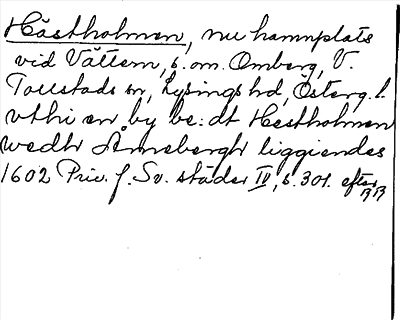 Hästholmen, nu hamnplats
vid Vättern, s. om Omberg, V.
Tollstads sn, Lysings hd, Österg. l.
vthi en by be:dt Hestholmen
wedh Åmebergh liggiendes
1602 Priv. f. Sv. städer IV, s. 301. efter